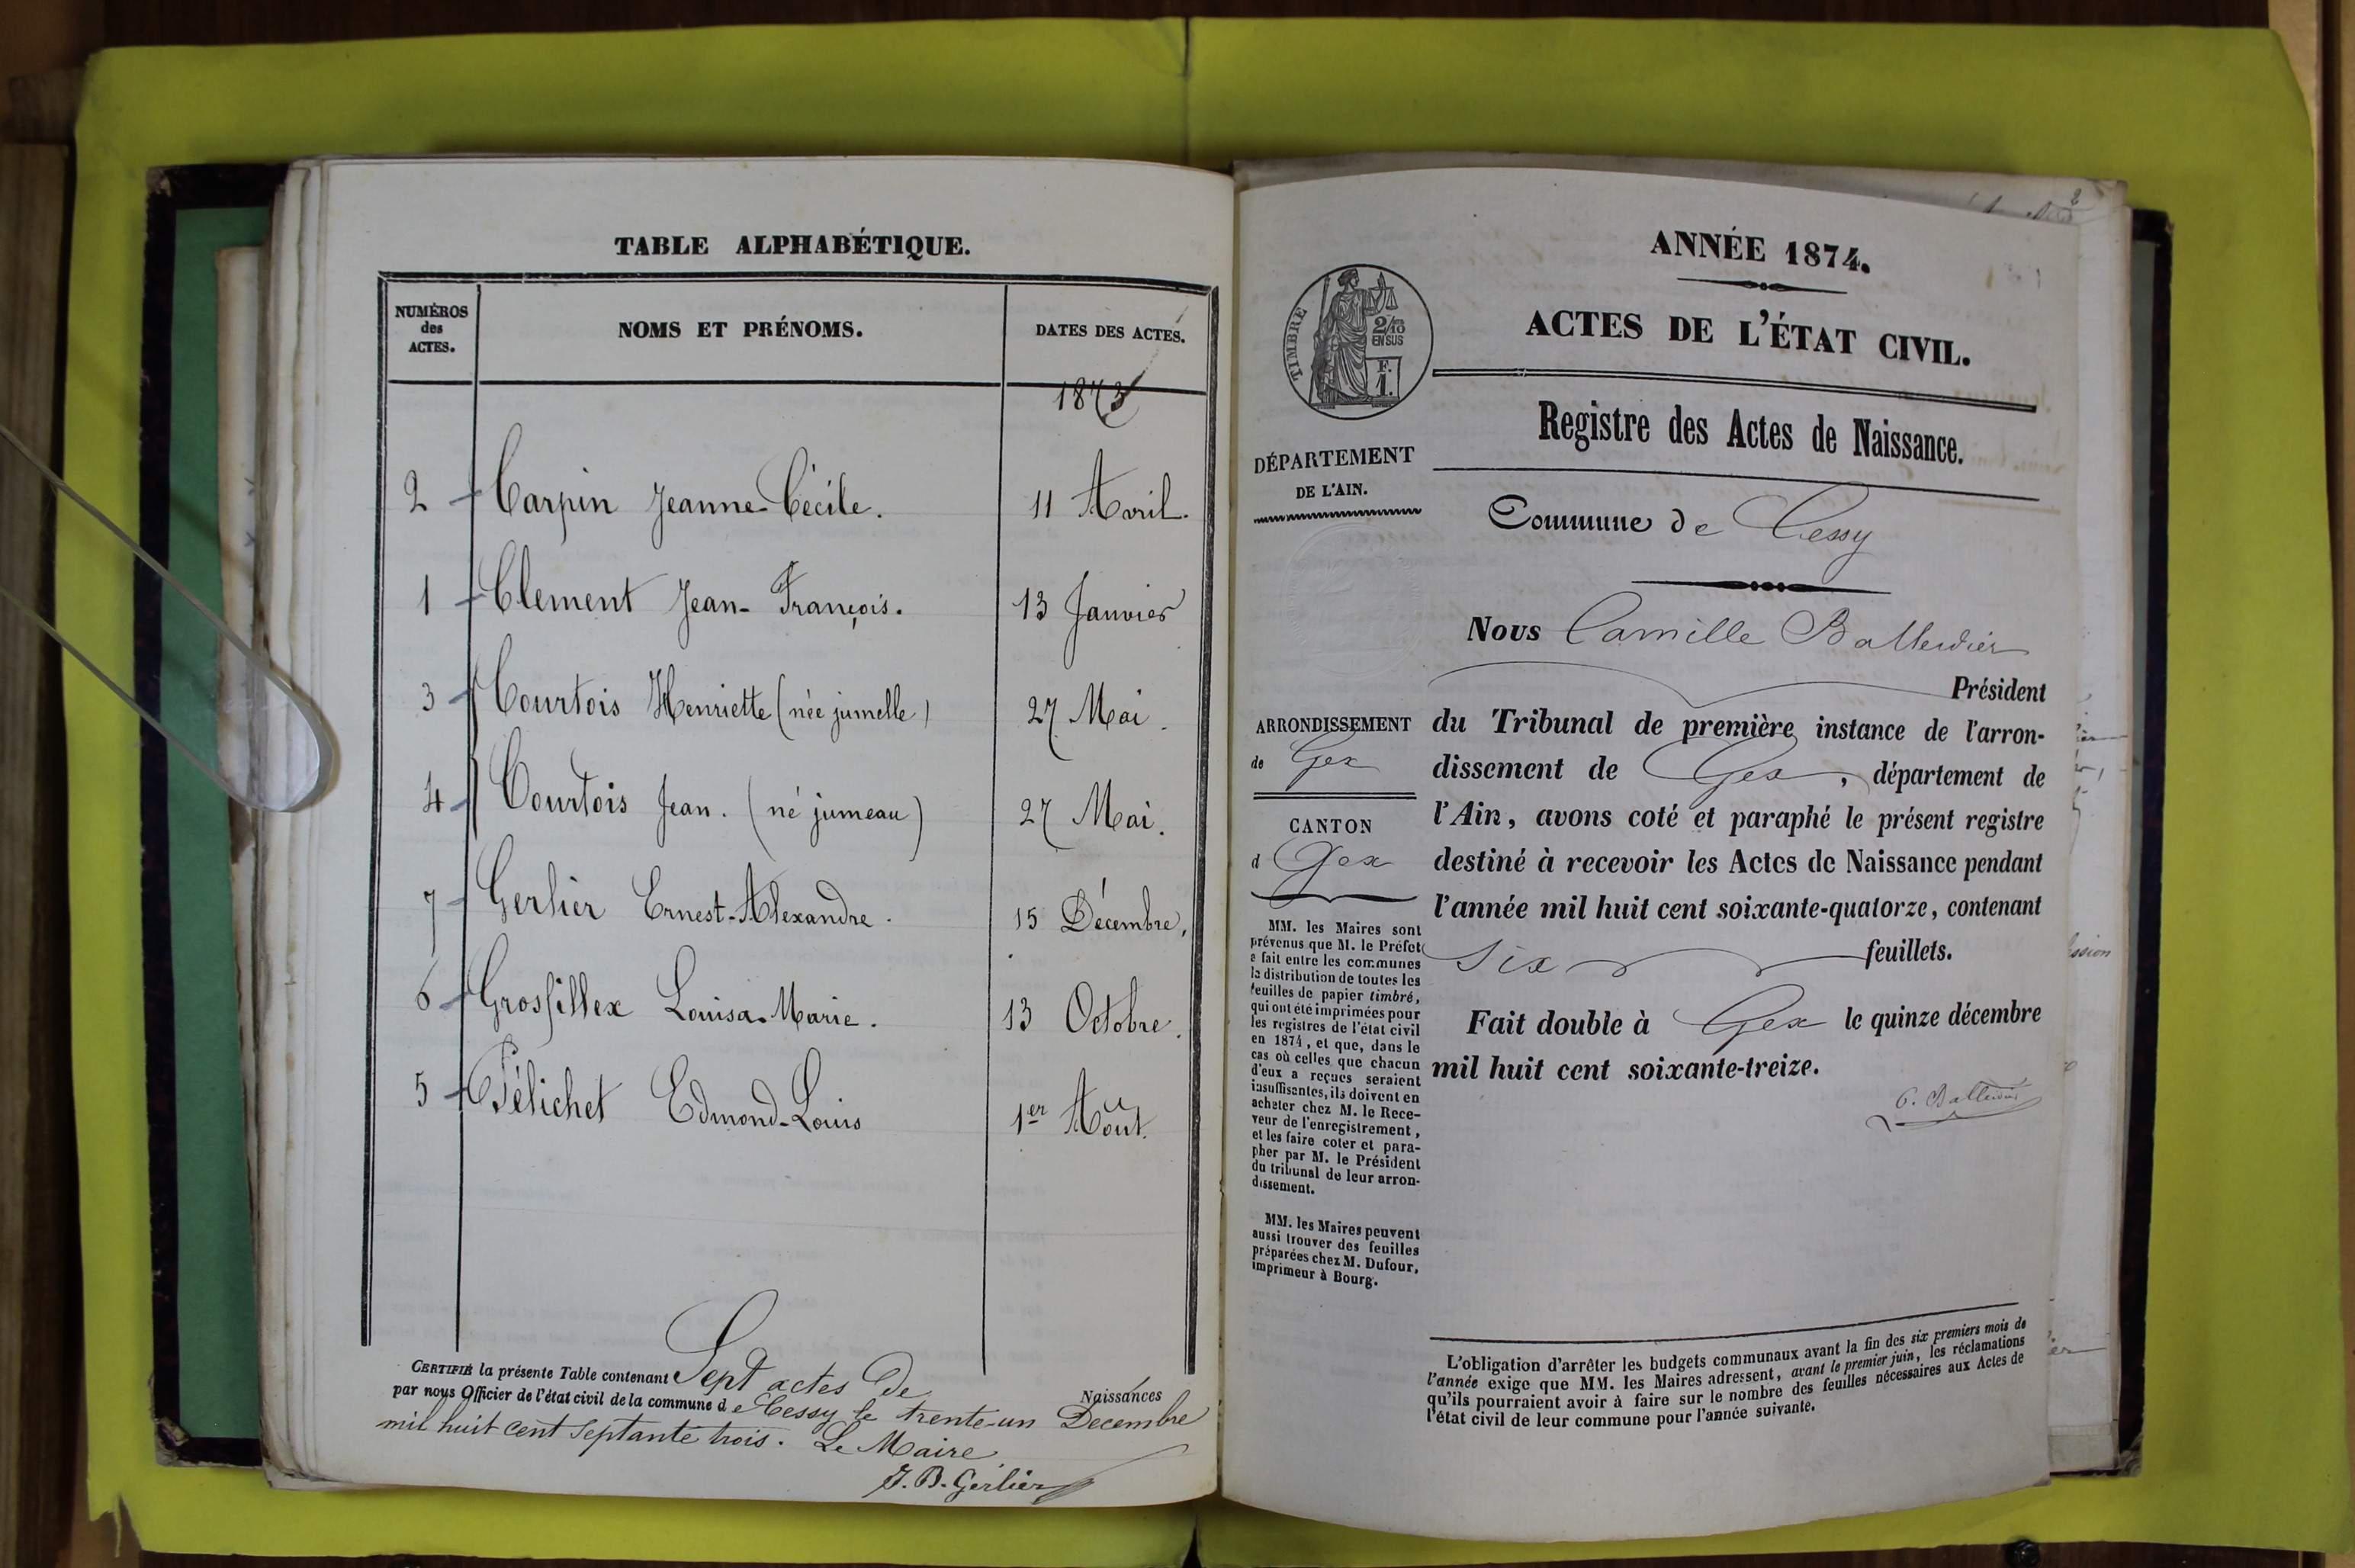 TABLE ALPHABÉTIQUE.
NUMÉROS
des
ACTES.
NOMS ET PRÉNOMS.
DATES DES ACTES.
1873
2 Carpin Jeanne-Cécile. 11 Avril.
1 Clement Jean-François. 13 Janvier
3 Courtois Henriette (née jumelle) 27 Mai.
4 Courtois Jean. (né jumeau) 27 Mai.
7 Gerlier Ernest-Alexandre. 15 Décembre.
6 Grosfillex Louisa-Marie. 13 Octobre.
5 Pélichet Edmond-Louis 1er Août.
CERTIFIÉ la présente Table contenant Sept actes de Naissances
par nous Officier de l'état civil de la commune de Cessy le trente-un Decembre
mil huit cent septante trois. Le Maire
J. B. Gerlier
ANNÉE 1874.
ACTES DE L'ÉTAT CIVIL.
TIMBRE
2/10
EN SUS
F.
1.
Registre des Actes de Naissance.
DÉPARTEMENT
DE L'AIN.
Commune de Cessy
Nous Camille Balleidier
Président
ARRONDISSEMENT
de Gex
CANTON
d Gex
du Tribunal de première instance de l'arron-
dissement de Gex, département de
l'Ain, avons coté et paraphé le présent registre
destiné à recevoir les Actes de Naissance pendant
l'année mil huit cent soixante-quatorze, contenant
Six feuillets.
Fait double à Gex le quinze décembre
mil huit cent soixante-treize.
C. Balleidier
MM. les Maires sont
prévenus que M. le Préfet
a fait entre les communes
la distribution de toutes les
feuilles de papier timbré,
qui ont été imprimées pour
les registres de l'état civil
en 1874, et que, dans le
cas où celles que chacun
d'eux a reçues seraient
insuffisantes, ils doivent en
acheter chez M. le Rece-
veur de l'enregistrement,
et les faire coter et para-
pher par M. le Président
du tribunal de leur arron-
dissement.
MM. les Maires peuvent
aussi trouver des feuilles
préparées chez M. Dufour,
imprimeur à Bourg.
L'obligation d'arrêter les budgets communaux avant la fin des six premiers mois de
l'année exige que MM. les Maires adressent, avant le premier juin, les réclamations
qu'ils pourraient avoir à faire sur le nombre des feuilles nécessaires aux Actes de
l'état civil de leur commune pour l'année suivante.